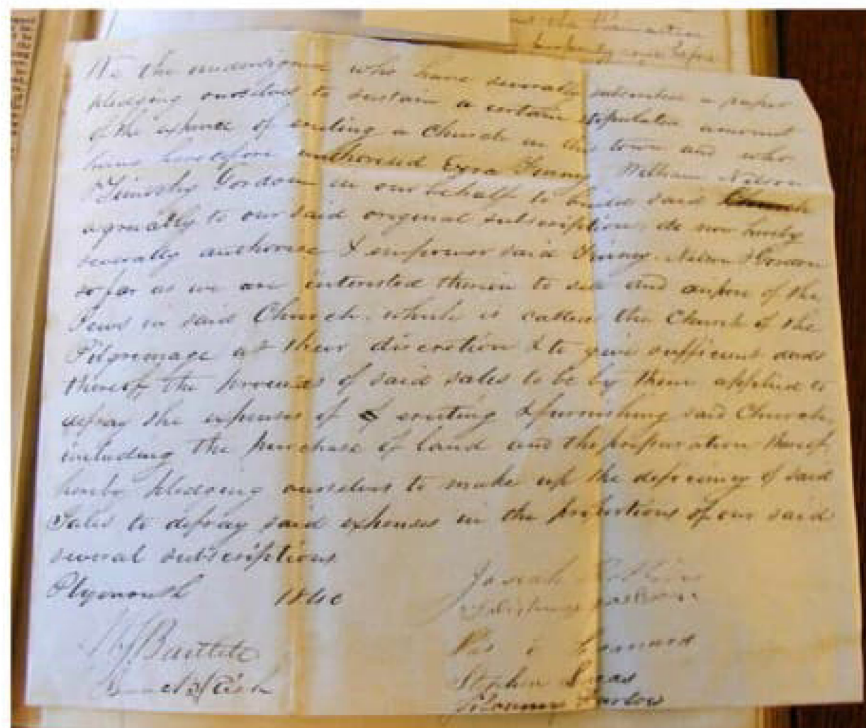 We the undersigned who have severally subscribed a paper
pledging ourselves to sustain a certain stipulated amount
of the expence of erecting a Church in this town and who
have heretofore authorised Ezra Finney William Nelson
& Timothy Gordon in our behalf to build said Church
agreeably to our said original subscription, do now hereby
severally authorise & empower said Finney, Nelson & Gordon
so far as we are interested therein to sell and dispose of the
Pews in said Church, which is called the Church of the
Pilgrimage at their discretion & to give sufficient deeds
thereof the proceeds of said sales to be by them applied to
defray the expenses of erecting & furnishing said Church,
including the purchase of land and the preparation thereof,
hereby pledging ourselves to make up the deficiency of said
Sales to defray said expenses in the proportions of our said
several subscriptions
Plymouth 1840
Josiah Robbins
Jackson
Bartlett
Leonard
Stephen Lucas